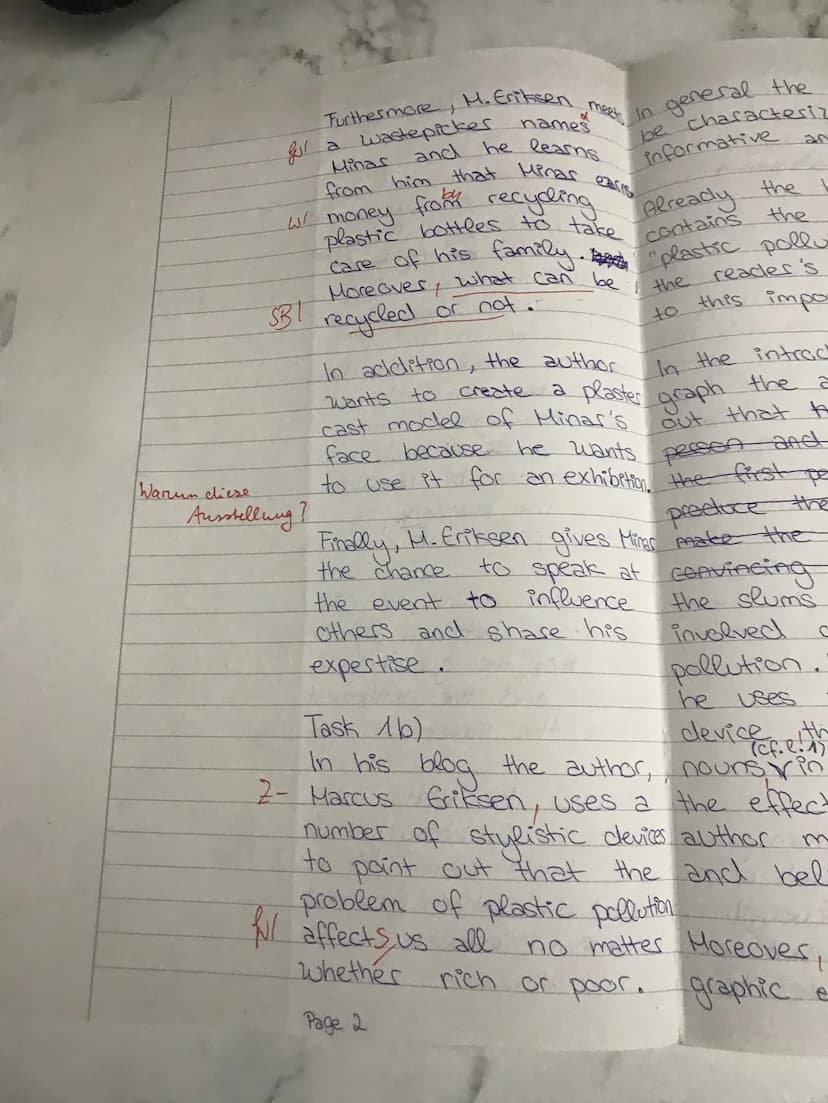 Furthermore, M. Eriksen meets
a wastepicker names d
Minas and he learns
from him that Minas earns
W/ money from by recycling
plastic bottles to take
care of his family.
Moreover, what can be
SB/ recycled or not.
In addition, the author
wants to create a plaster
cast model of Minas's
face because he wants
to use it for an exhibition.
Warum diese
Ausstellung?
Finally, M. Eriksen gives Minas
the chance to speak at
the event to influence
others and share his
expertise.
Task 1b)
In his blog the author,
Z- Marcus Eriksen, uses a
number of stylistic devices
to point out that the
problem of plastic pollution
affects us all no matter
whether rich or poor.
Page 2
In general the
be characteriz
informative an
Already the
contains the
"plastic pollu
the reader's
to this impo
In the introd
graph the a
out that
person and
the first pe
produce the
make the
convincing
the slums
involved
pollution.
he uses
device, th
(cf. l. 1)
nouns, in
the effect
author m
and bel
Moreover,
graphic e